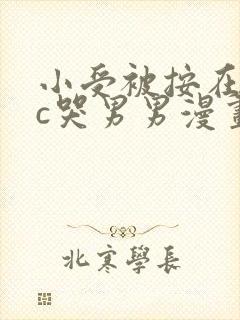 小受被按在
c哭男男漫畫
北寒學長